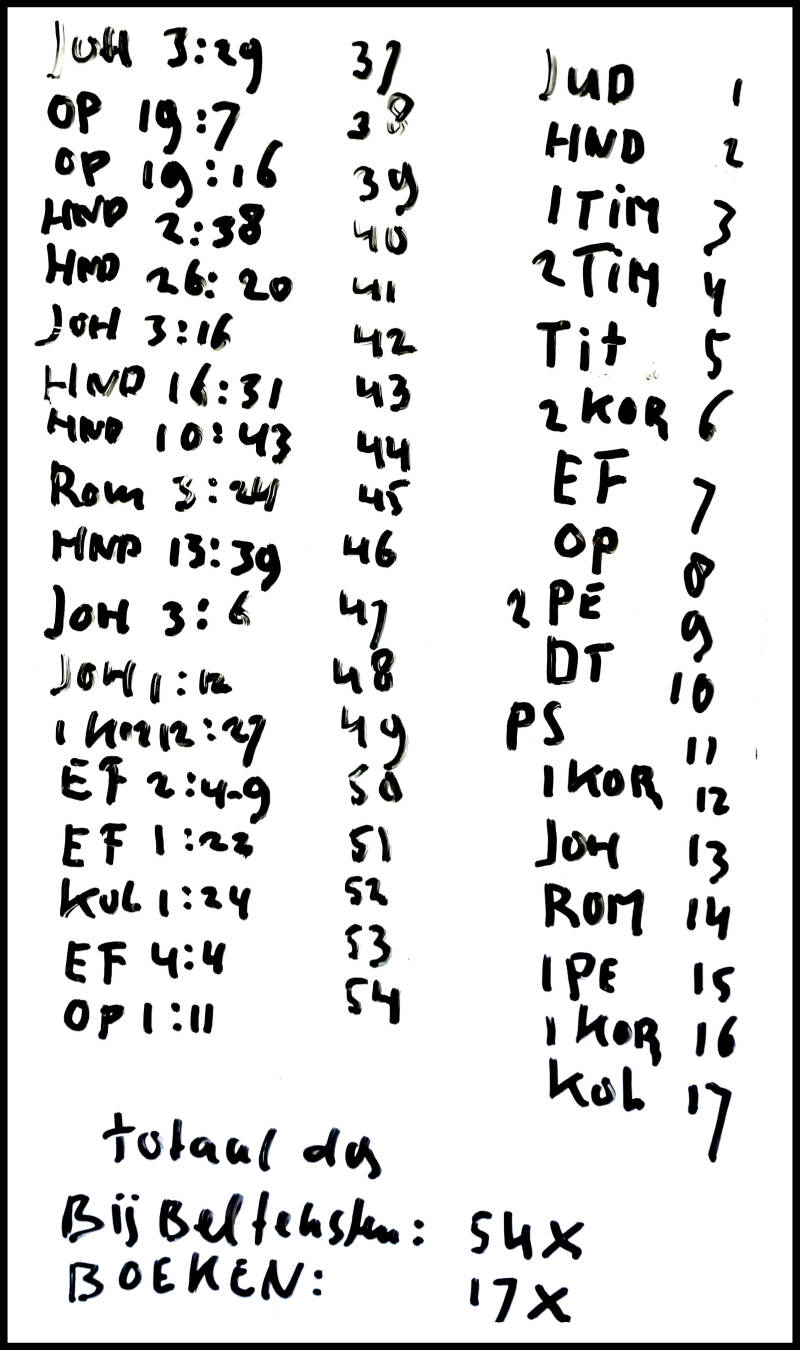 JOH 3:29 37
OP 19:7 38
OP 19:16 39
HND 2:38 40
HND 26:20 41
JOH 3:16 42
HND 16:31 43
HND 10:43 44
Rom 3:24 45
HND 13:39 46
JOH 3:6 47
JOH 1:12 48
1 Kor 12:27 49
EF 2:4-9 50
EF 1:22 51
KOL 1:24 52
EF 4:4 53
OP 1:11 54
JUD 1
HND 2
1 TiM 3
2 TiM 4
Tit 5
2 KOR 6
EF 7
OP 8
2 PE 9
DT 10
PS 11
1 KOR 12
JOH 13
ROM 14
1 PE 15
1 KOR 16
KOL 17
totaal dus
Bijbelteksten: 54x
BOEKEN: 17x